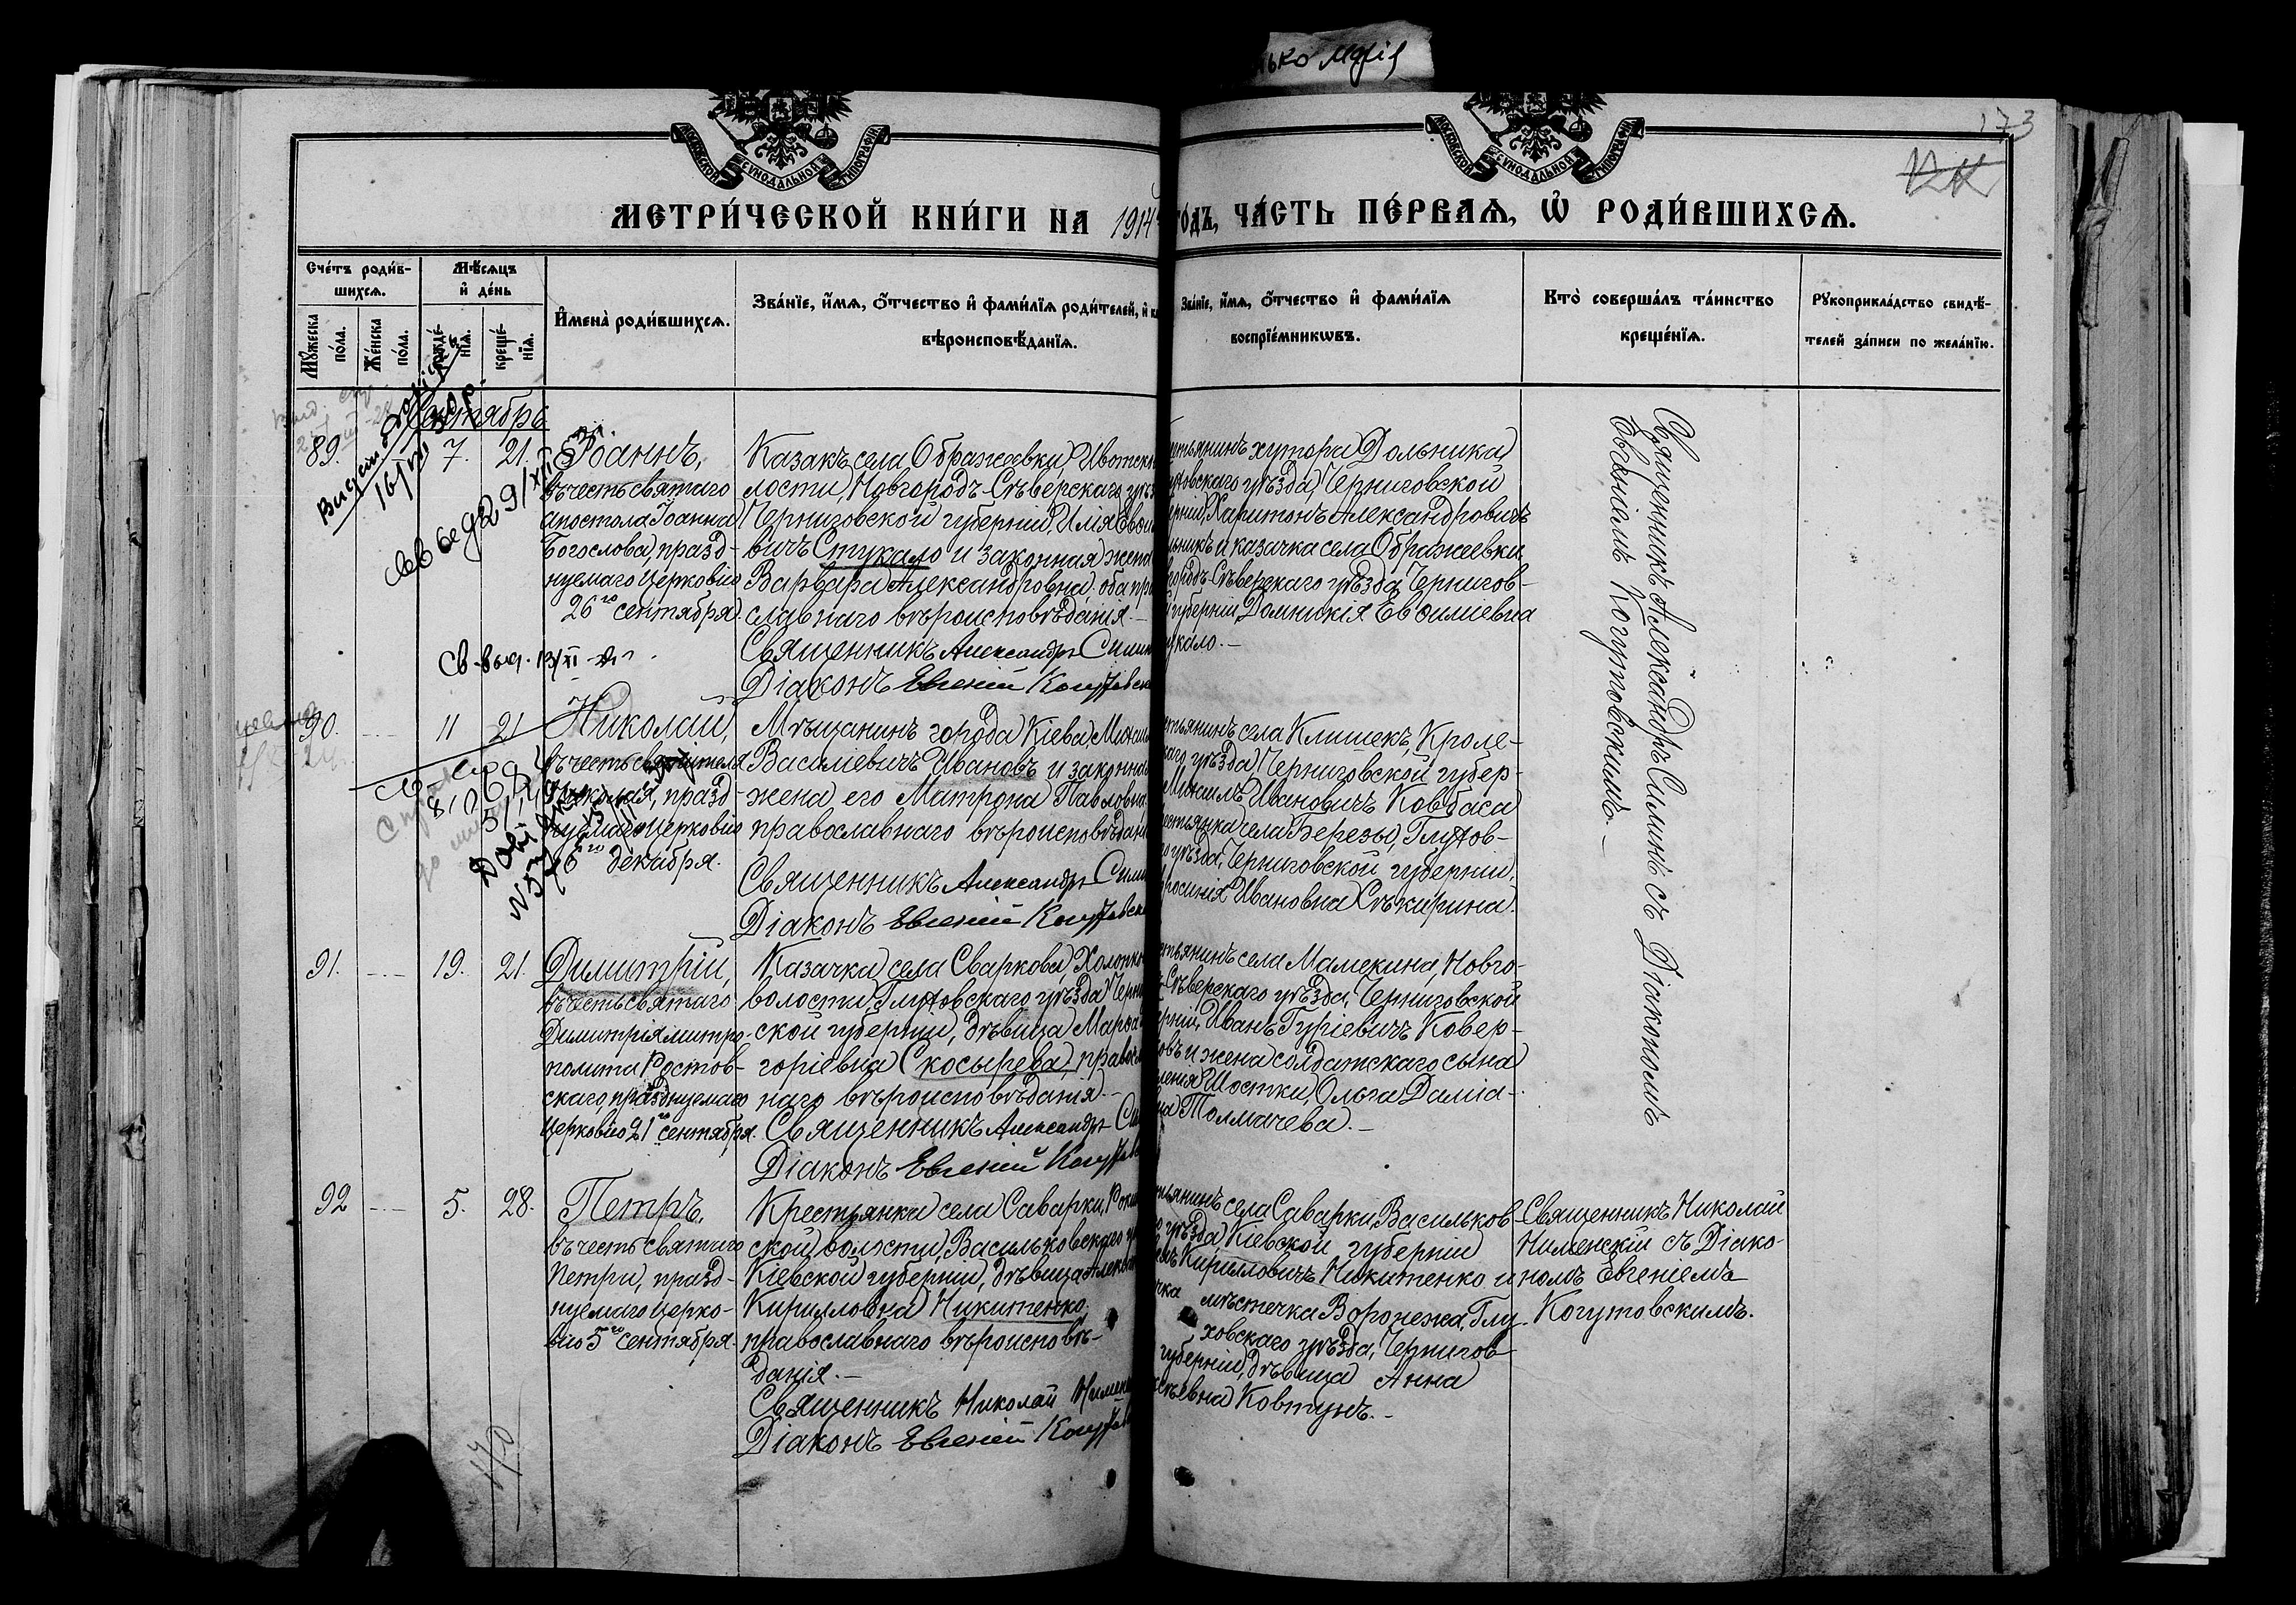 ько Марія
173
МОСКОВСКОЙ СѴНОДАЛЬНОЙ ТИПОГРАФІИ
МОСКОВСКОЙ СѴНОДАЛЬНОЙ ТИПОГРАФІИ
МЕТРИ́ЧЕСКОЙ КНИ́ГИ НА 1914
ГО́ДЪ, ЧА́СТЬ ПЕ́РВАѦ, Ѽ РОДИ́ВШИХСѦ.
Сче́тъ роди́в-
шихсѧ.
Мѣ́сѧцъ
и҆ де́нь
Мꙋ́жеска
по́ла.
Же́нска
по́ла.
рожде́-
нїѧ.
креще́-
нїѧ.
И҆мена̀ роди́вшихсѧ.
Зва́нїе, и҆́мѧ, ѻ҆́тчество и҆ фами́лїѧ роди́телей, и҆
вѣроисповѣ́данїѧ.
Зва́нїе, и҆́мѧ, ѻ҆́тчество и҆ фами́лїѧ
воспрїе́мникѡвъ.
Кто̀ соверша́лъ та́инство
креще́нїѧ.
Рꙋкоприкла́дство свидѣ́-
телей за́писи по жела́нїю.
Сентябрь
89. 7. 21. Іоаннъ,
въ честь святаго
апостола Іоанна
Богослова, празд-
нуемаго Церковію
26го сентября.
Казакъ села Ображеевки, Ивотск
лости, Новгородъ-Сѣверскаго уѣз
Черниговской губерніи, Илія Евѳи
вичъ Стукало и законная жена
Варвара Александровна, оба пра
славнаго вѣроисповѣданія.—
Священникъ Александръ Симин
Діаконъ Евгеній Когутовск
стьянинъ хутора Дольника
уховскаго уѣзда, Черниговской
ерніи, Харитонъ Александровичъ
льникъ и казачка села Ображеевки
вгородъ-Сѣверскаго уѣзда, Чернигов-
губерніи, Домникія Евѳиміевна
укало.—
Священникъ Александръ Симинъ съ Діакономъ
Евгеніемъ Когутовскимъ.—
Св. выд. 13/XI
90. 11 21 Николай,
въ честь святителя
Николая, празд-
нуемаго Церковію
6го декабря.
Мѣщанинъ города Кіева, Михаил
Василіевичъ Ивановъ и законная
жена его Матрона Павловна
православнаго вѣроисповѣдан
Священникъ Александръ Сими
Діаконъ Евгеній Когутовск
стьянинъ села Клишекъ, Кроле-
каго уѣзда, Черниговской губер-
Михаилъ Ивановичъ Ковбаса
естьянка села Березы, Глухов-
о уѣзда, Черниговской губерніи,
фросинія Ивановна Сѣкирина.
91. 19. 21. Димитрій,
въ честь святаго
Димитрія митро-
полита Ростов-
скаго, празднуемаго
Церковію 21го сентября.
Казачка села Сваркова, Холопко
волости, Глуховскаго уѣзда, Черни
ской губерніи, дѣвица Марѳа
горіевна Скосырева, правос
наго вѣроисповѣданія.—
Священникъ Александръ Си
Діаконъ Евгеній Когутов
стьянинъ села Мамекина, Новго-
ъ-Сѣверскаго уѣзда, Черниговской
ерніи, Иванъ Гуріевичъ Ковер-
овъ и жена солдатскаго сына
ленія Шостки, Ольга Даміа-
на Толмачева.—
92 5. 28. Петръ,
въ честь святаго
Петра, празд-
нуемаго Церко-
вію 5го сентября.
Крестьянка села Саварки, Роки
ской волости, Васильковскаго у
Кіевской губерніи, дѣвица Алекса
Кирилловна Никитенко,
православнаго вѣроисповѣ-
данія.—
Священникъ Николай Нименск
Діаконъ Евгеній Когутов
тьянинъ села Саварки, Васильков-
о уѣзда, Кіевской губерніи
Кирилловичъ Никитенко и
чка мѣстечка Воронежа, Глу-
ховскаго уѣзда, Чернигов
губерніи, дѣвица Анна
сѣевна Ковтунъ.—
Священникъ Николай
Нименскій съ Діако-
номъ Евгеніемъ
Когутовскимъ.